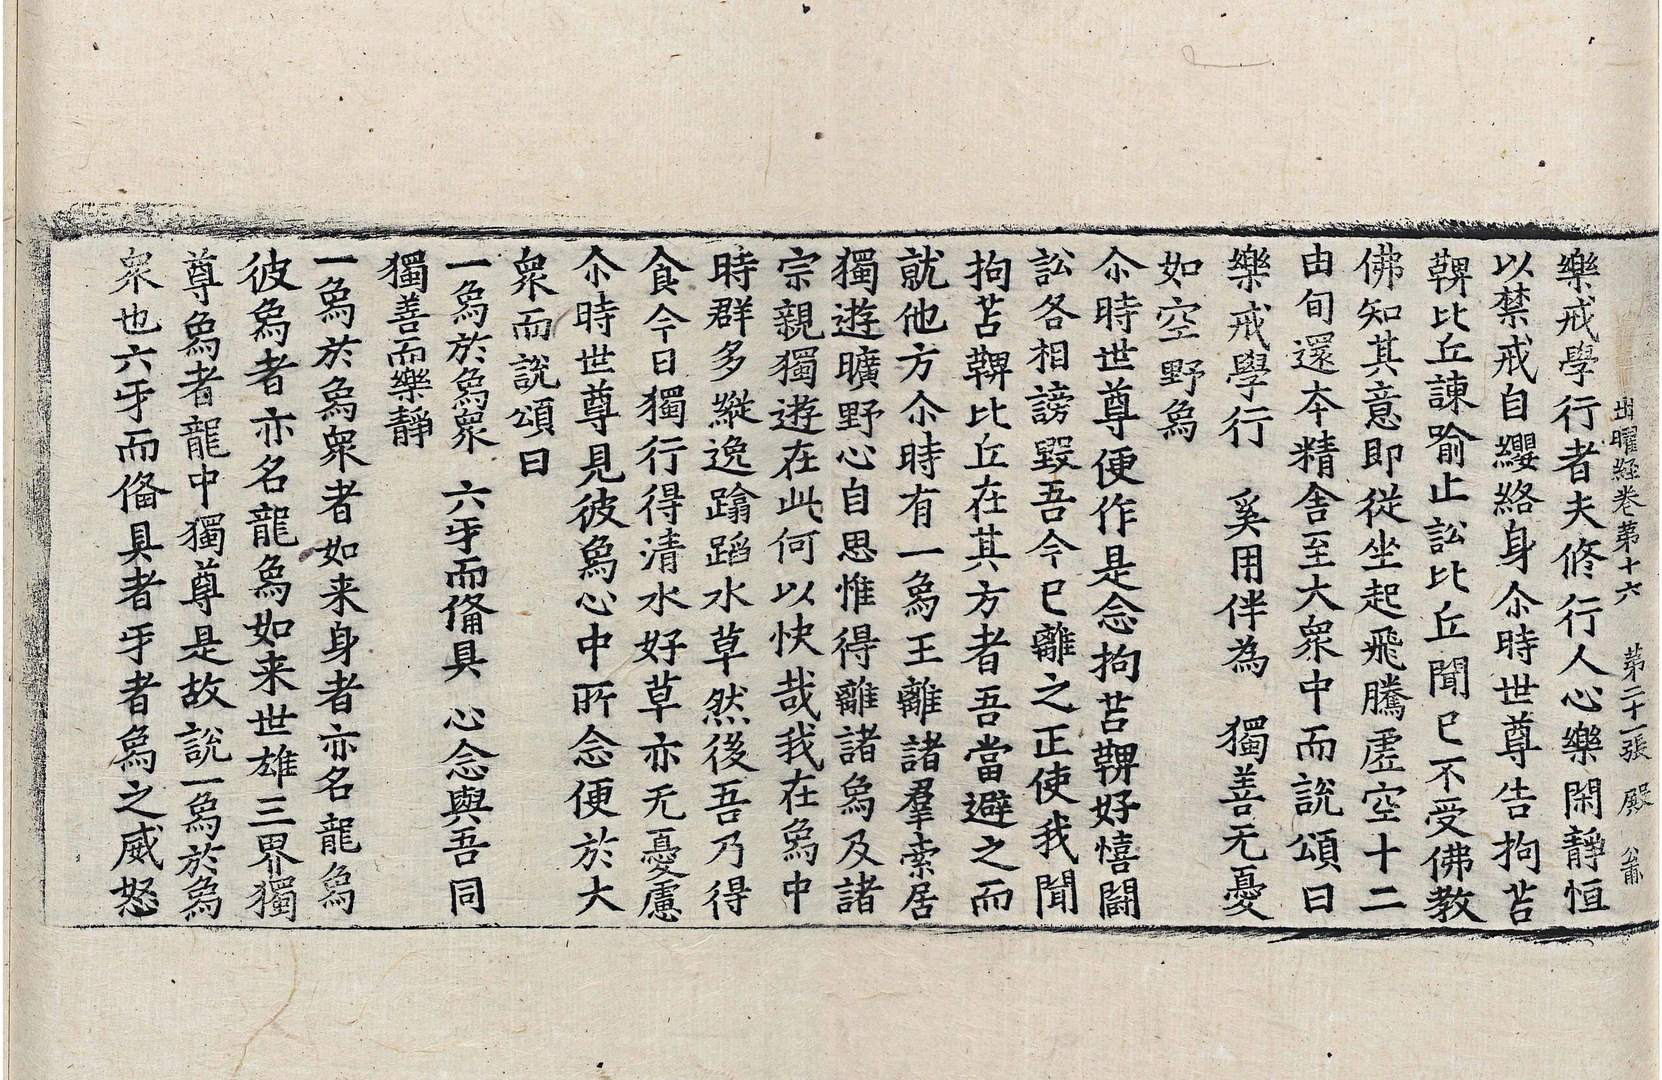 出曜経卷苐十六 苐二十一張 殿
樂戒學行者夫修行人心樂閑靜恒
以禁戒自纓絡身尒時世尊告拘苫
鞞比丘諫喻止訟比丘聞已不受佛教
佛知其意即從坐起飛騰虛空十二
由旬還夲精舍至大衆中而說頌曰
樂戒學行 奚用伴為 獨善无憂
如空野象
尒時世尊便作是念拘苫鞞好憘鬪
訟各相謗毀吾今已離之正使我聞
拘苫鞞比丘在其方者吾當避之而
就他方尒時有一象王離諸羣索居
獨遊曠野心自思惟得離諸象及諸
宗親獨遊在此何以快哉我在象中
時群多縱逸踰蹈水草然後吾乃得
食今日獨行得清水好草亦无憂慮
尒時世尊見彼象心中所念便於大
衆而說頌曰
一象於象衆 六牙而俻具 心念與吾同
獨善而樂靜
一象於象衆者如来身者亦名龍象
彼象者亦名龍象如来世雄三界獨
尊象者龍中獨尊是故說一象於象
衆也六牙而俻具者牙者象之威怒